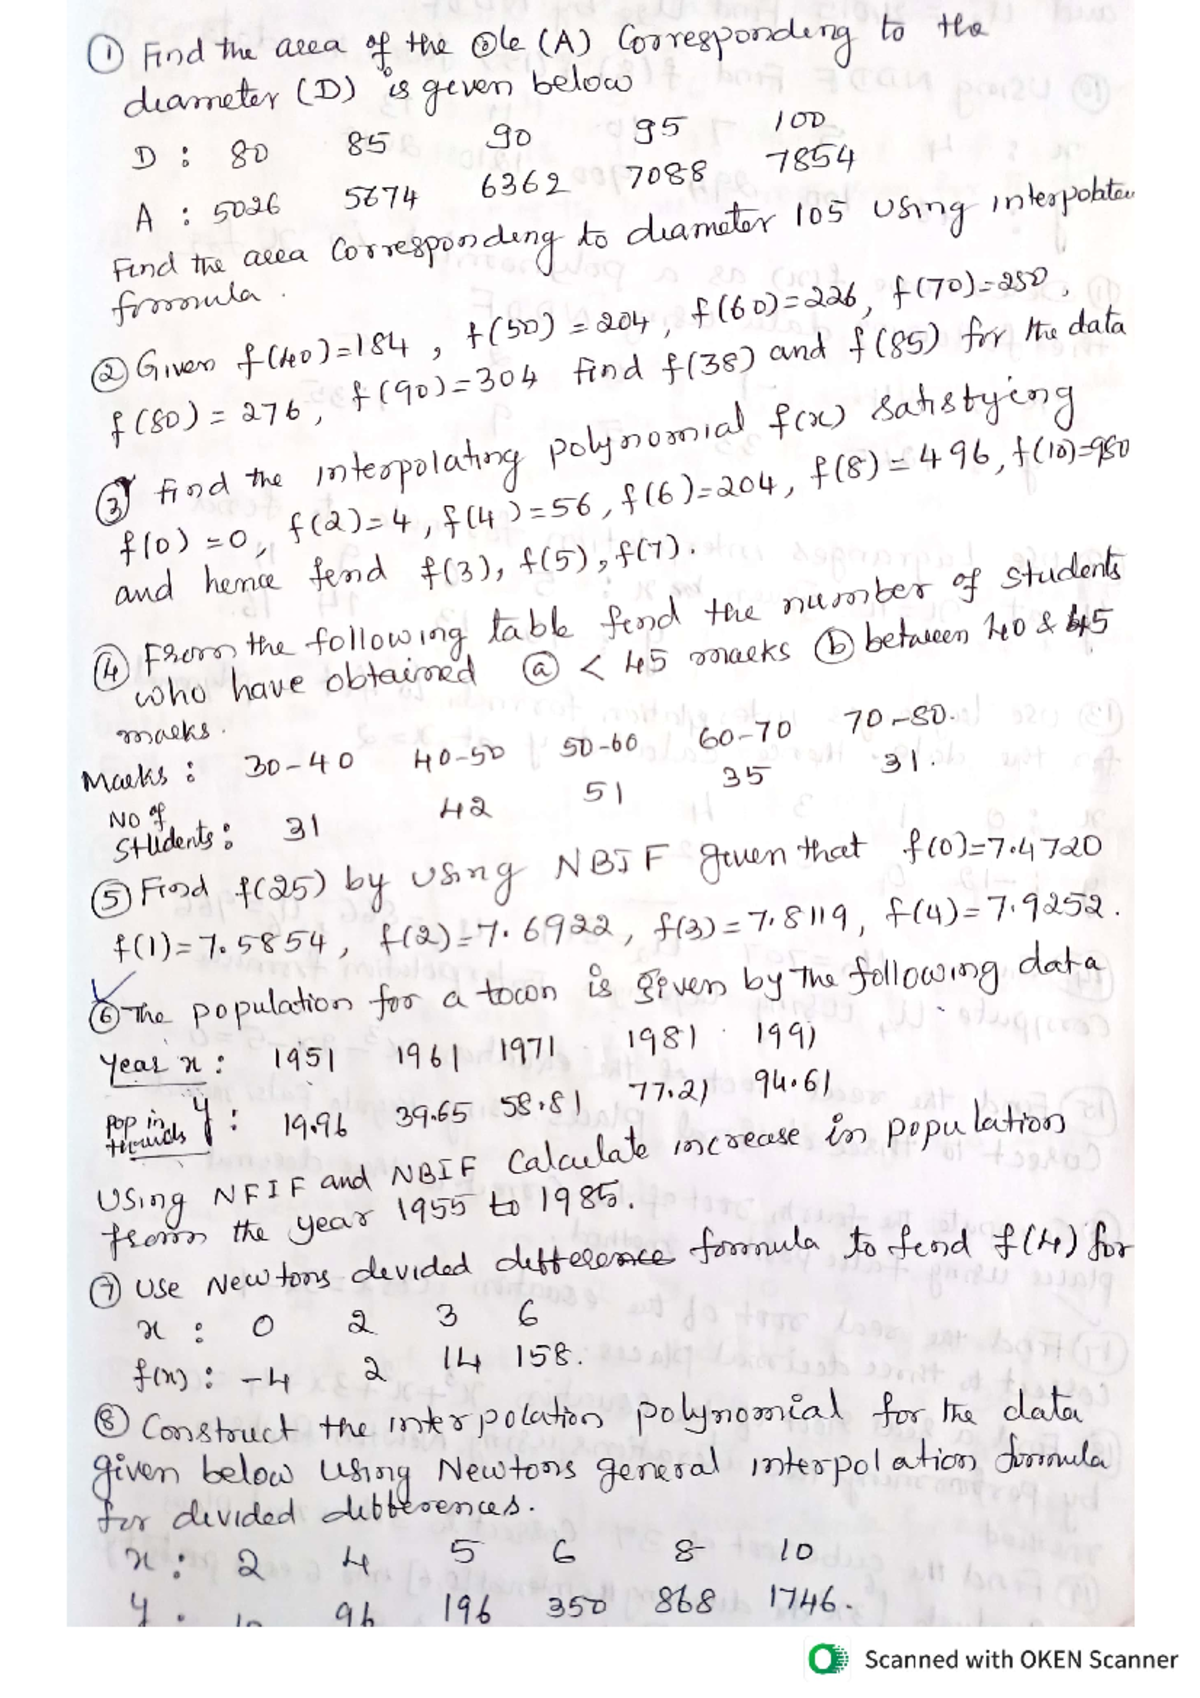 ① Find the area of the ⊙le (A) Corresponding to the
diameter (D) is given below
D : 80 85 90 95 100
A : 5026 5674 6362 7088 7854
Find the area Corresponding to diameter 105 using interpolation
formula.
② Given f(40)=184, f(50)=204, f(60)=226, f(70)=250,
f(80)=276, f(90)=304 find f(38) and f(85) for the data
③ find the interpolating polynomial f(x) satistying
f(0)=0, f(2)=4, f(4)=56, f(6)=204, f(8)=496, f(10)=980
and hence find f(3), f(5), f(7).
④ From the following table find the number of students
who have obtained ⓐ < 45 marks ⓑ between 40 & 45
marks.
Marks : 30-40 40-50 50-60 60-70 70-80.
No of
Students : 31 42 51 35 31.
⑤ Find f(25) by using NBIF given that f(0)=7.4720
f(1)=7.5854, f(2)=7.6922, f(3)=7.8119, f(4)=7.9252.
⑥ The population for a town is given by the following data
Year x : 1951 1961 1971 1981 1991
Pop in y : 19.96 39.65 58.81 77.21 94.61
Using NFIF and NBIF Calculate increase in population
from the year 1955 to 1985.
⑦ Use Newtons divided difference formula to find f(4) for
x : 0 2 3 6
f(x) : -4 2 14 158.
⑧ Construct the interpolation polynomial for the data
given below using Newtons general interpolation formula
for divided differences.
x : 2 4 5 6 8 10
y : 96 196 350 868 1746.
Scanned with OKEN Scanner